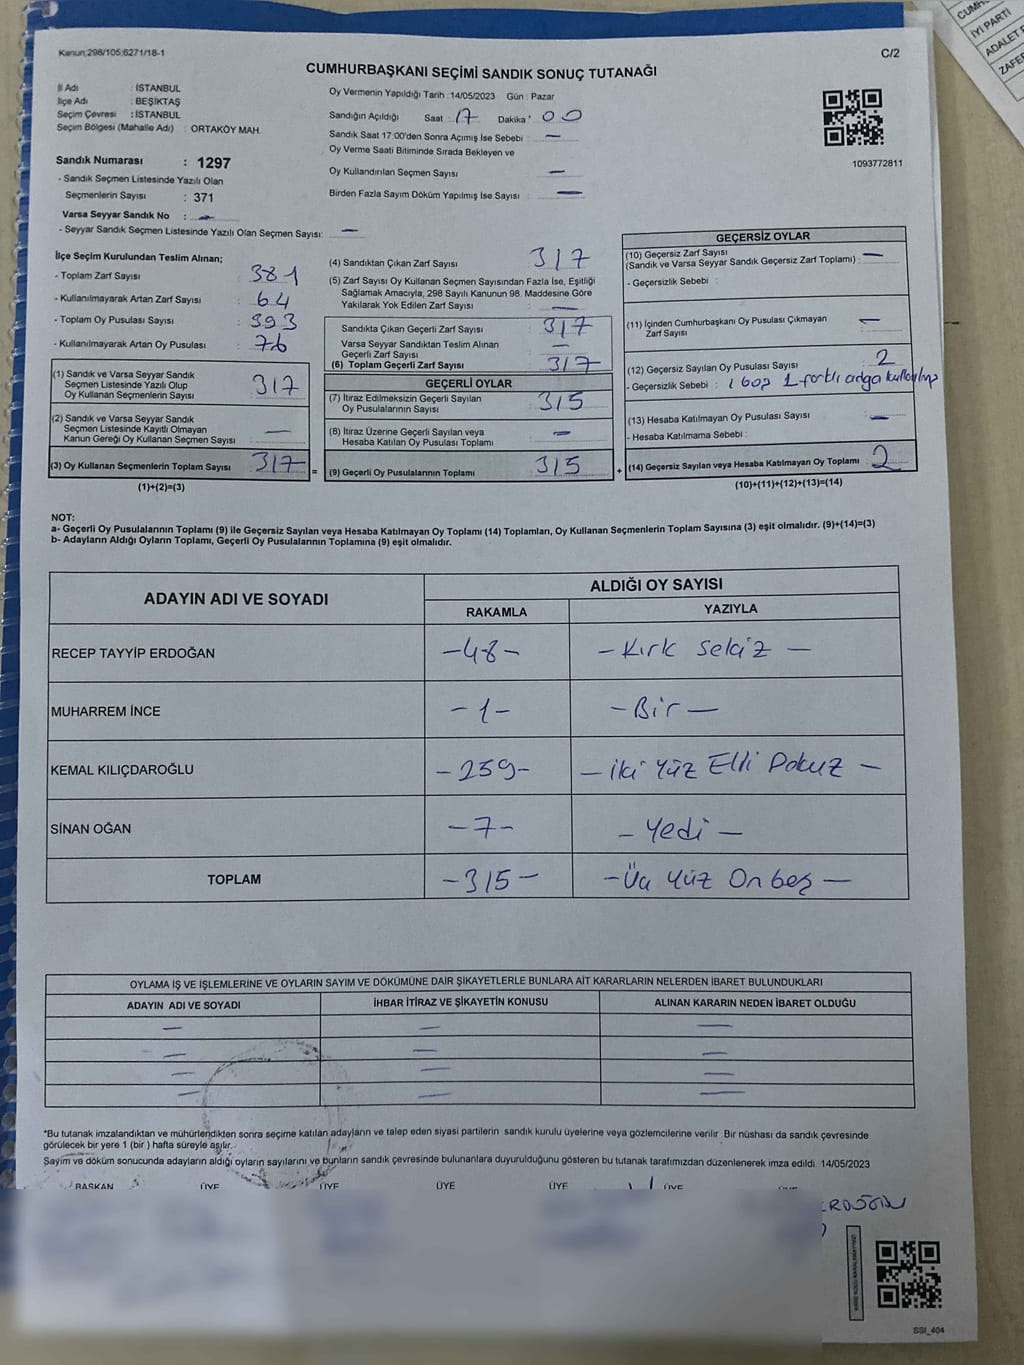 Kanun:298/105;6271/18-1
C/2
CUMHURBAŞKANI SEÇİMİ SANDIK SONUÇ TUTANAĞI
CUMH
İYİ PARTİ
ADALET
ZAFE
İl Adı : İSTANBUL
İlçe Adı : BEŞİKTAŞ
Seçim Çevresi : İSTANBUL
Seçim Bölgesi (Mahalle Adı) : ORTAKÖY MAH.
Sandık Numarası : 1297
- Sandık Seçmen Listesinde Yazılı Olan
Seçmenlerin Sayısı : 371
Varsa Seyyar Sandık No : —
- Seyyar Sandık Seçmen Listesinde Yazılı Olan Seçmen Sayısı: —
Oy Vermenin Yapıldığı Tarih : 14/05/2023 Gün : Pazar
Sandığın Açıldığı Saat : 17 Dakika : 00
Sandık Saat 17:00'den Sonra Açımış İse Sebebi : —
Oy Verme Saati Bitiminde Sırada Bekleyen ve
Oy Kullandırılan Seçmen Sayısı —
Birden Fazla Sayım Döküm Yapılmış İse Sayısı : —
1093772811
İlçe Seçim Kurulundan Teslim Alınan;
- Toplam Zarf Sayısı : 381
- Kullanılmayarak Artan Zarf Sayısı : 64
- Toplam Oy Pusulası Sayısı : 393
- Kullanılmayarak Artan Oy Pusulası : 76
(1) Sandık ve Varsa Seyyar Sandık
Seçmen Listesinde Yazılı Olup
Oy Kullanan Seçmenlerin Sayısı : 317
(2) Sandık ve Varsa Seyyar Sandık
Seçmen Listesinde Kayıtlı Olmayan
Kanun Gereği Oy Kullanan Seçmen Sayısı : —
(3) Oy Kullanan Seçmenlerin Toplam Sayısı : 317
(1)+(2)=(3)
(4) Sandıktan Çıkan Zarf Sayısı : 317
(5) Zarf Sayısı Oy Kullanan Seçmen Sayısından Fazla İse, Eşitliği
Sağlamak Amacıyla, 298 Sayılı Kanunun 98. Maddesine Göre
Yakılarak Yok Edilen Zarf Sayısı : —
Sandıkta Çıkan Geçerli Zarf Sayısı : 317
Varsa Seyyar Sandıktan Teslim Alınan
Geçerli Zarf Sayısı : —
(6) Toplam Geçerli Zarf Sayısı : 317
GEÇERLİ OYLAR
(7) İtiraz Edilmeksizin Geçerli Sayılan
Oy Pusulalarının Sayısı : 315
(8) İtiraz Üzerine Geçerli Sayılan veya
Hesaba Katılan Oy Pusulası Toplamı : —
= (9) Geçerli Oy Pusulalarının Toplamı : 315
GEÇERSİZ OYLAR
(10) Geçersiz Zarf Sayısı
(Sandık ve Varsa Seyyar Sandık Geçersiz Zarf Toplamı) : —
- Geçersizlik Sebebi :
(11) İçinden Cumhurbaşkanı Oy Pusulası Çıkmayan
Zarf Sayısı : —
(12) Geçersiz Sayılan Oy Pusulası Sayısı : 2
- Geçersizlik Sebebi : 1 1 farklı
(13) Hesaba Katılmayan Oy Pusulası Sayısı : —
- Hesaba Katılmama Sebebi :
+ (14) Geçersiz Sayılan veya Hesaba Katılmayan Oy Toplamı : 2
(10)+(11)+(12)+(13)=(14)
NOT:
a- Geçerli Oy Pusulalarının Toplamı (9) ile Geçersiz Sayılan veya Hesaba Katılmayan Oy Toplamı (14) Toplamları, Oy Kullanan Seçmenlerin Toplam Sayısına (3) eşit olmalıdır. (9)+(14)=(3)
b- Adayların Aldığı Oyların Toplamı, Geçerli Oy Pusulalarının Toplamına (9) eşit olmalıdır.
ADAYIN ADI VE SOYADI
ALDIĞI OY SAYISI
RAKAMLA YAZIYLA
RECEP TAYYİP ERDOĞAN -48- -Kırk Sekiz-
MUHARREM İNCE -1- -Bir-
KEMAL KILIÇDAROĞLU -259- -İki Yüz Elli Dokuz-
SİNAN OĞAN -7- -Yedi-
TOPLAM -315- -Üç Yüz On beş-
OYLAMA İŞ VE İŞLEMLERİNE VE OYLARIN SAYIM VE DÖKÜMÜNE DAİR ŞİKAYETLERLE BUNLARA AİT KARARLARIN NELERDEN İBARET BULUNDUKLARI
ADAYIN ADI VE SOYADI İHBAR İTİRAZ VE ŞİKAYETİN KONUSU ALINAN KARARIN NEDEN İBARET OLDUĞU
— — —
— — —
— — —
— — —
*Bu tutanak imzalandıktan ve mühürlendikten sonra seçime katılan adayların ve talep eden siyasi partilerin sandık kurulu üyelerine veya gözlemcilerine verilir. Bir nüshası da sandık çevresinde
görülecek bir yere 1 (bir ) hafta süreyle asılır.
Sayım ve döküm sonucunda adayların aldığı oyların sayılarını ve bunların sandık çevresinde bulunanlara duyurulduğunu gösteren bu tutanak tarafımızdan düzenlenerek imza edildi. 14/05/2023
BAŞKAN ÜYE ÜYE ÜYE ÜYE ÜYE
SSI_404